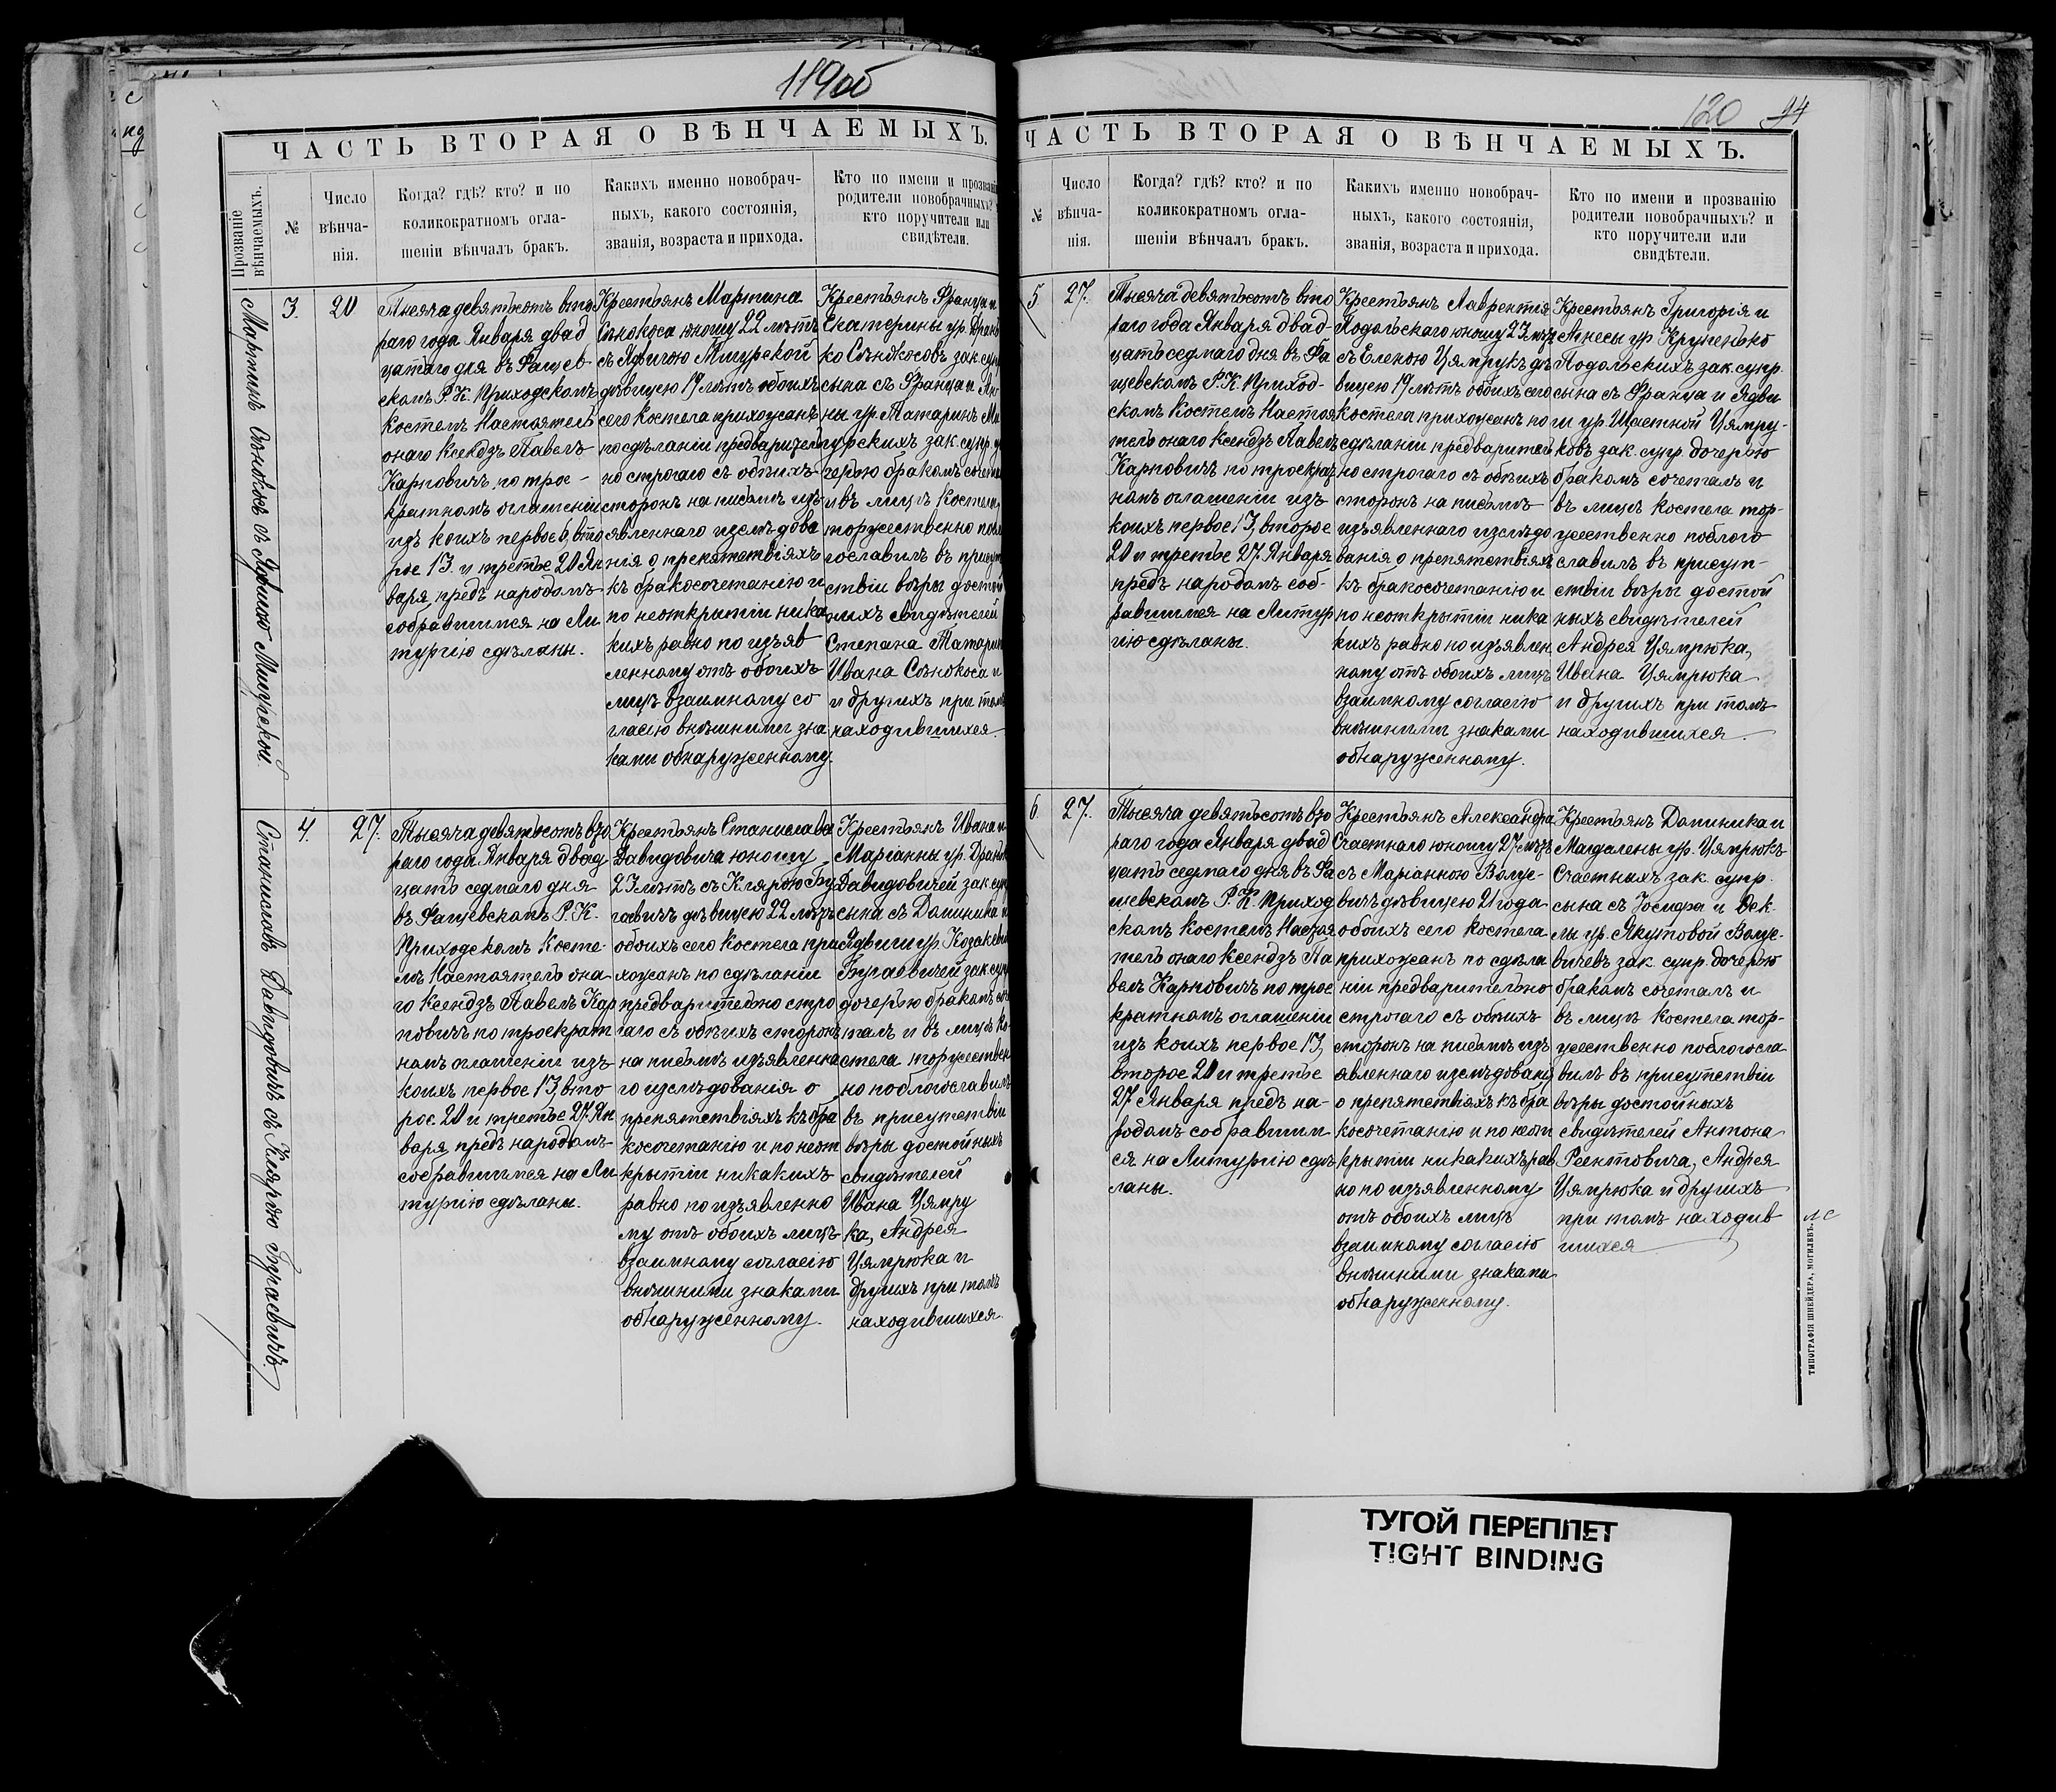 119 об
ЧАСТЬ ВТОРАЯ О ВѢНЧАЕМЫХЪ.
Прозваніе
вѣнчаемыхъ.
№
Число
вѣнча-
нія.
Когда? гдѣ? кто? и по
коликократномъ огла-
шеніи вѣнчалъ бракъ.
Какихъ именно новобрач-
ныхъ, какого состоянія,
званія, возраста и прихода.
Кто по имени и прозванію
родители новобрачныхъ?
кто поручители или
свидѣтели.
Мартинъ Сѣнокосъ съ Мигурской
3.
20
Тысяча девятьсотъ вто
раго года Января двад
цатаго дня въ Фащев
скомъ Р. К. Приходскомъ
костелѣ Настоятель
онаго Ксендзъ Павелъ
Карповичъ по трое-
кратномъ оглашеніи
изъ коихъ первое 6, вто
рое 13. и третье 20 Ян
варя, предъ народомъ
собравшимся на Ли
тургію сдѣланы.
Крестьянъ Мартина
Сѣнокоса юношу 22 лѣтъ
съ Мигурской
дѣвицею 19 лѣтъ обоихъ
сего Костела прихожанъ
по сдѣланіи предварител
но строгаго съ обѣихъ
сторонъ на письмѣ изъ
явленнаго изслѣдова
нія о препятствіяхъ
къ бракосочетанію и
по неоткрытіи ника
кихъ равно по изъяв
ленному отъ обоихъ
лицъ взаимному со
гласію внѣшними зна
ками обнаруженному.
Крестьянъ Франца и
Екатерины ур.
ко Сѣнокосовъ зак. супр.
сына съ Франца и Ан
ны ур. Татаринъ Ми
гурскихъ зак. супр. до
черью бракомъ
и въ лицѣ Костела
торжественно побл
гославилъ въ присут
ствіи вѣры достой
ныхъ свидѣтелей
Степана Татарин
Ивана Сѣнокоса и
и другихъ при томъ
находившихся.
Станиславъ Давидовичъ съ Клярою Бугаевичъ.
4.
27.
Тысяча девятьсотъ вто
раго года Января двад
цать седмаго дня
въ Фащевскомъ Р. К.
Приходскомъ Косте-
лѣ Настоятель она
го Ксендзъ Павелъ Кар
повичъ по троекрат
номъ оглашеніи изъ
коихъ первое 13, вто
рое 20 и третье 27. Ян
варя предъ народомъ
собравшимся на Ли
тургію сдѣланы.
Крестьянъ Станислава
Давидовича юношу
23 лѣтъ съ Клярою Бу
гаевичъ дѣвицею 22 лѣтъ
обоихъ сего Костела при
хожанъ по сдѣланіи
предварительно стро
гаго съ обѣихъ сторонъ
на письмѣ изъявленна
го изслѣдованія о
препятствіяхъ къ бра
косочетанію и по неот
крытіи никакихъ
равно по изъявленно
му отъ обоихъ лицъ
взаимному согласію
внѣшними знаками
обнаруженному.
Крестьянъ Ивана и
Маріанны ур.
Давидовичей зак. суп
сына съ Доминика и
Ядвиги ур. Козакевич
Бугаевичей зак. суп
дочерью бракомъ соче
талъ и въ лицѣ Ко-
стела торжествен
но поблогославилъ
въ присутствіи
вѣры достойныхъ
свидѣтелей
Ивана Цямрю
ка, Андрея
Цямрюка и
другихъ при томъ
находившихся.
120 94
ЧАСТЬ ВТОРАЯ О ВѢНЧАЕМЫХЪ.
№
Число
вѣнча-
нія.
Когда? гдѣ? кто? и по
коликократномъ огла-
шеніи вѣнчалъ бракъ.
Какихъ именно новобрач-
ныхъ, какого состоянія,
званія, возраста и прихода.
Кто по имени и прозванію
родители новобрачныхъ? и
кто поручители или
свидѣтели.
5
27.
Тысяча девятьсотъ вто
раго года Января двад-
цать седмаго дня въ Фа
щевскомъ Р. К. Приход-
скомъ Костелѣ Настоя
тель онаго Ксендзъ Павелъ
Карповичъ по троекрат
номъ оглашеніи изъ
коихъ первое 13, второе
20 и третье 27. Января
предъ народомъ соб-
равшимся на Литур
гію сдѣланы.
Крестьянъ Лаврентія
Подольскаго юношу 23 лѣтъ
съ Еленою Цямрукъ дѣ
вицею 19 лѣтъ обоихъ сего
Костела прихожанъ по
сдѣланіи предварител
но строгаго съ обѣихъ
сторонъ на письмѣ
изъявленнаго изслѣдо
ванія о препятствіяхъ
къ бракосочетанію и
по неоткрытіи ника
кихъ равно по изъявлен
ному отъ обоихъ лицъ
взаимному согласію
внѣшними знаками
обнаруженному.
Крестьянъ Григорія и
Агнесы ур. Крупенько
Подольскихъ зак. супр.
сына съ Франца и Ядви
ги ур. Щастной Цямру-
ковъ зак. супр. дочерью
бракомъ сочеталъ и
въ лицѣ Костела тор-
жественно поблого
славилъ въ присут-
ствіи вѣры достой
ныхъ свидѣтелей
Андрея Цямрюка,
Ивана Цямрюка
и другихъ при томъ
находившихся.
6
27.
Тысяча девятьсотъ вто
раго года Января двад
цать седмаго дня въ Фа
щевскомъ Р. К. Приход
скомъ Костелѣ Настоя
тель онаго Ксендзъ Па
велъ Карповичъ по трое
кратномъ оглашеніи
изъ коихъ первое 13,
второе 20 и третье
27 Января предъ на-
родомъ собравшим
ся на Литургію сдѣ
ланы.
Крестьянъ Александра
Счастнаго юношу 27 лѣтъ
съ Маріанною Волуе-
вичъ дѣвицею 21 года
обоихъ сего Костела
прихожанъ по сдѣла
ніи предварительно
строгаго съ обѣихъ
сторонъ на письмѣ изъ
явленнаго изслѣдовані
о препятствіяхъ къ бра
косочетанію и по неот
крытіи никакихъ рав
но по изъявленному
отъ обоихъ лицъ
взаимному согласію
внѣшними знаками
обнаруженному.
Крестьянъ Доминика и
Магдалены ур. Цямрюкъ
Счастныхъ зак. супр.
сына съ Іосифа и Фек
лы ур. Якутовой Волуе-
вичевъ зак. супр. дочерью
бракомъ сочеталъ и
въ лицѣ Костела тор-
жественно поблогосла
вилъ въ присутствіи
вѣры достойныхъ
свидѣтелей Антона
Реентовича, Андрея
Цямрюка и другихъ
при томъ находив
шихся
ТИПОГРАФІЯ ШНЕЙДЕРА, МОГИЛЕВЪ.
ТУГОЙ ПЕРЕПЛЕТ
TIGHT BINDING